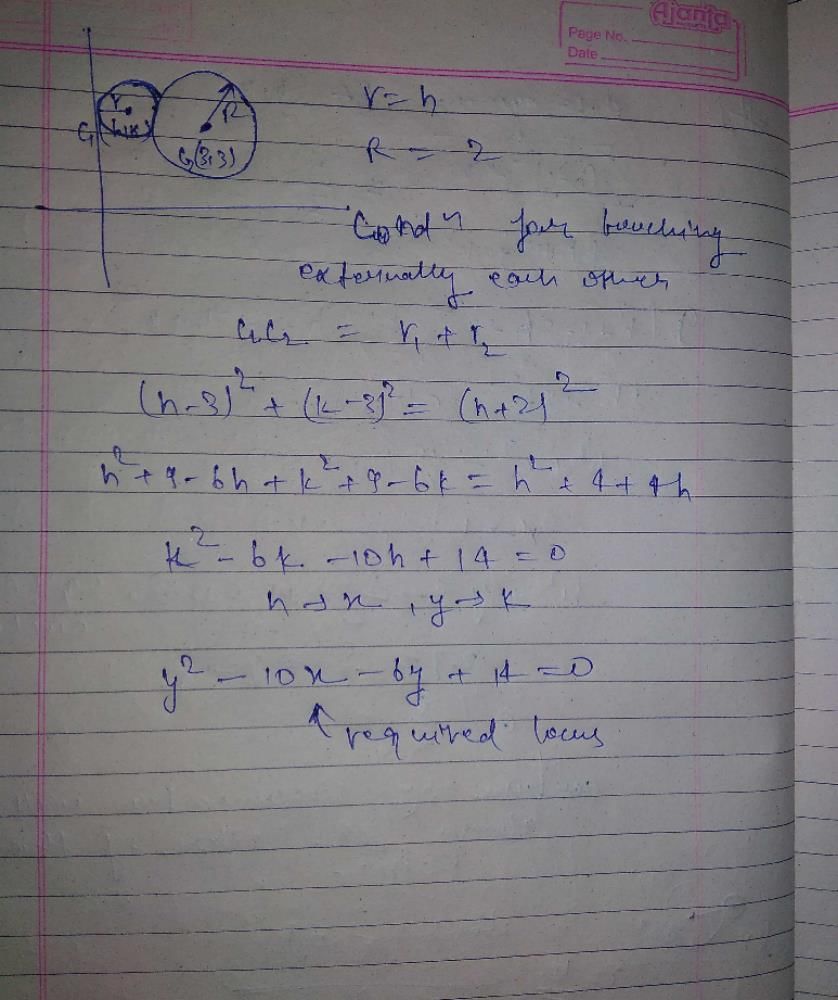 Ajanta
Page No.
Date
r
(h,k)
C₁
R
C₂(3,3)
r = h
R = 2
Condⁿ for touching
externally each other
C₁C₂ = r₁ + r₂
(h-3)² + (k-3)² = (h+2)²
h² + 9 - 6h + k² + 9 - 6k = h² + 4 + 4h
k² - 6k - 10h + 14 = 0
h → x , y → k
y² - 10x - 6y + 14 = 0
↑ required locus